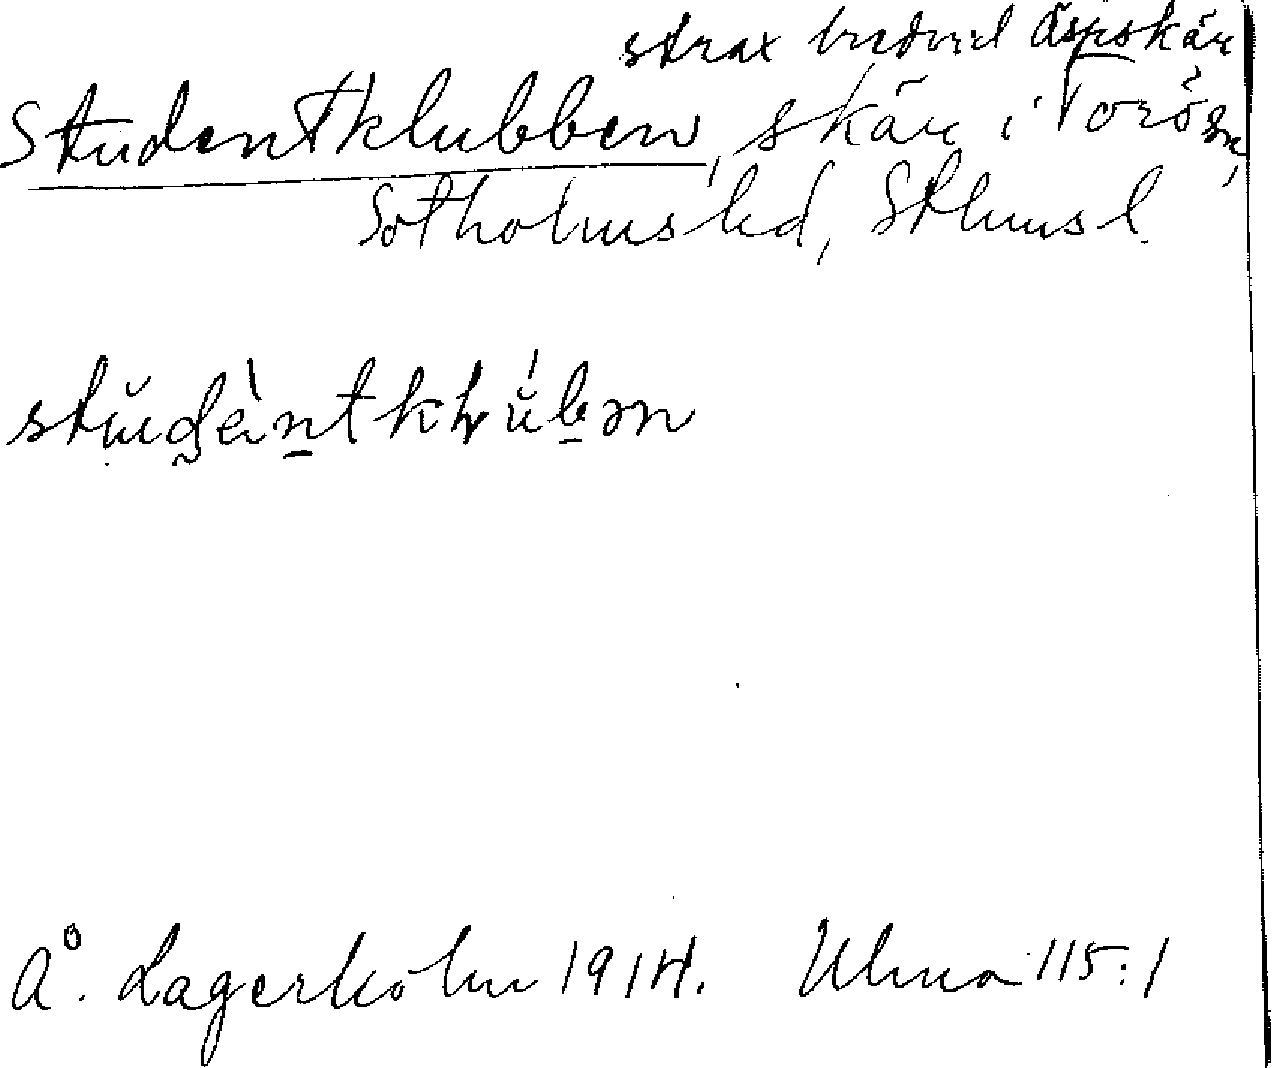 strax bredvid Aspskär
Studentklubben, skär i Torö sn,
Sotholms hd, Sthlms l.
stŭdèntklúbən
Å. Lagerholm 1914. Ulma 115:1